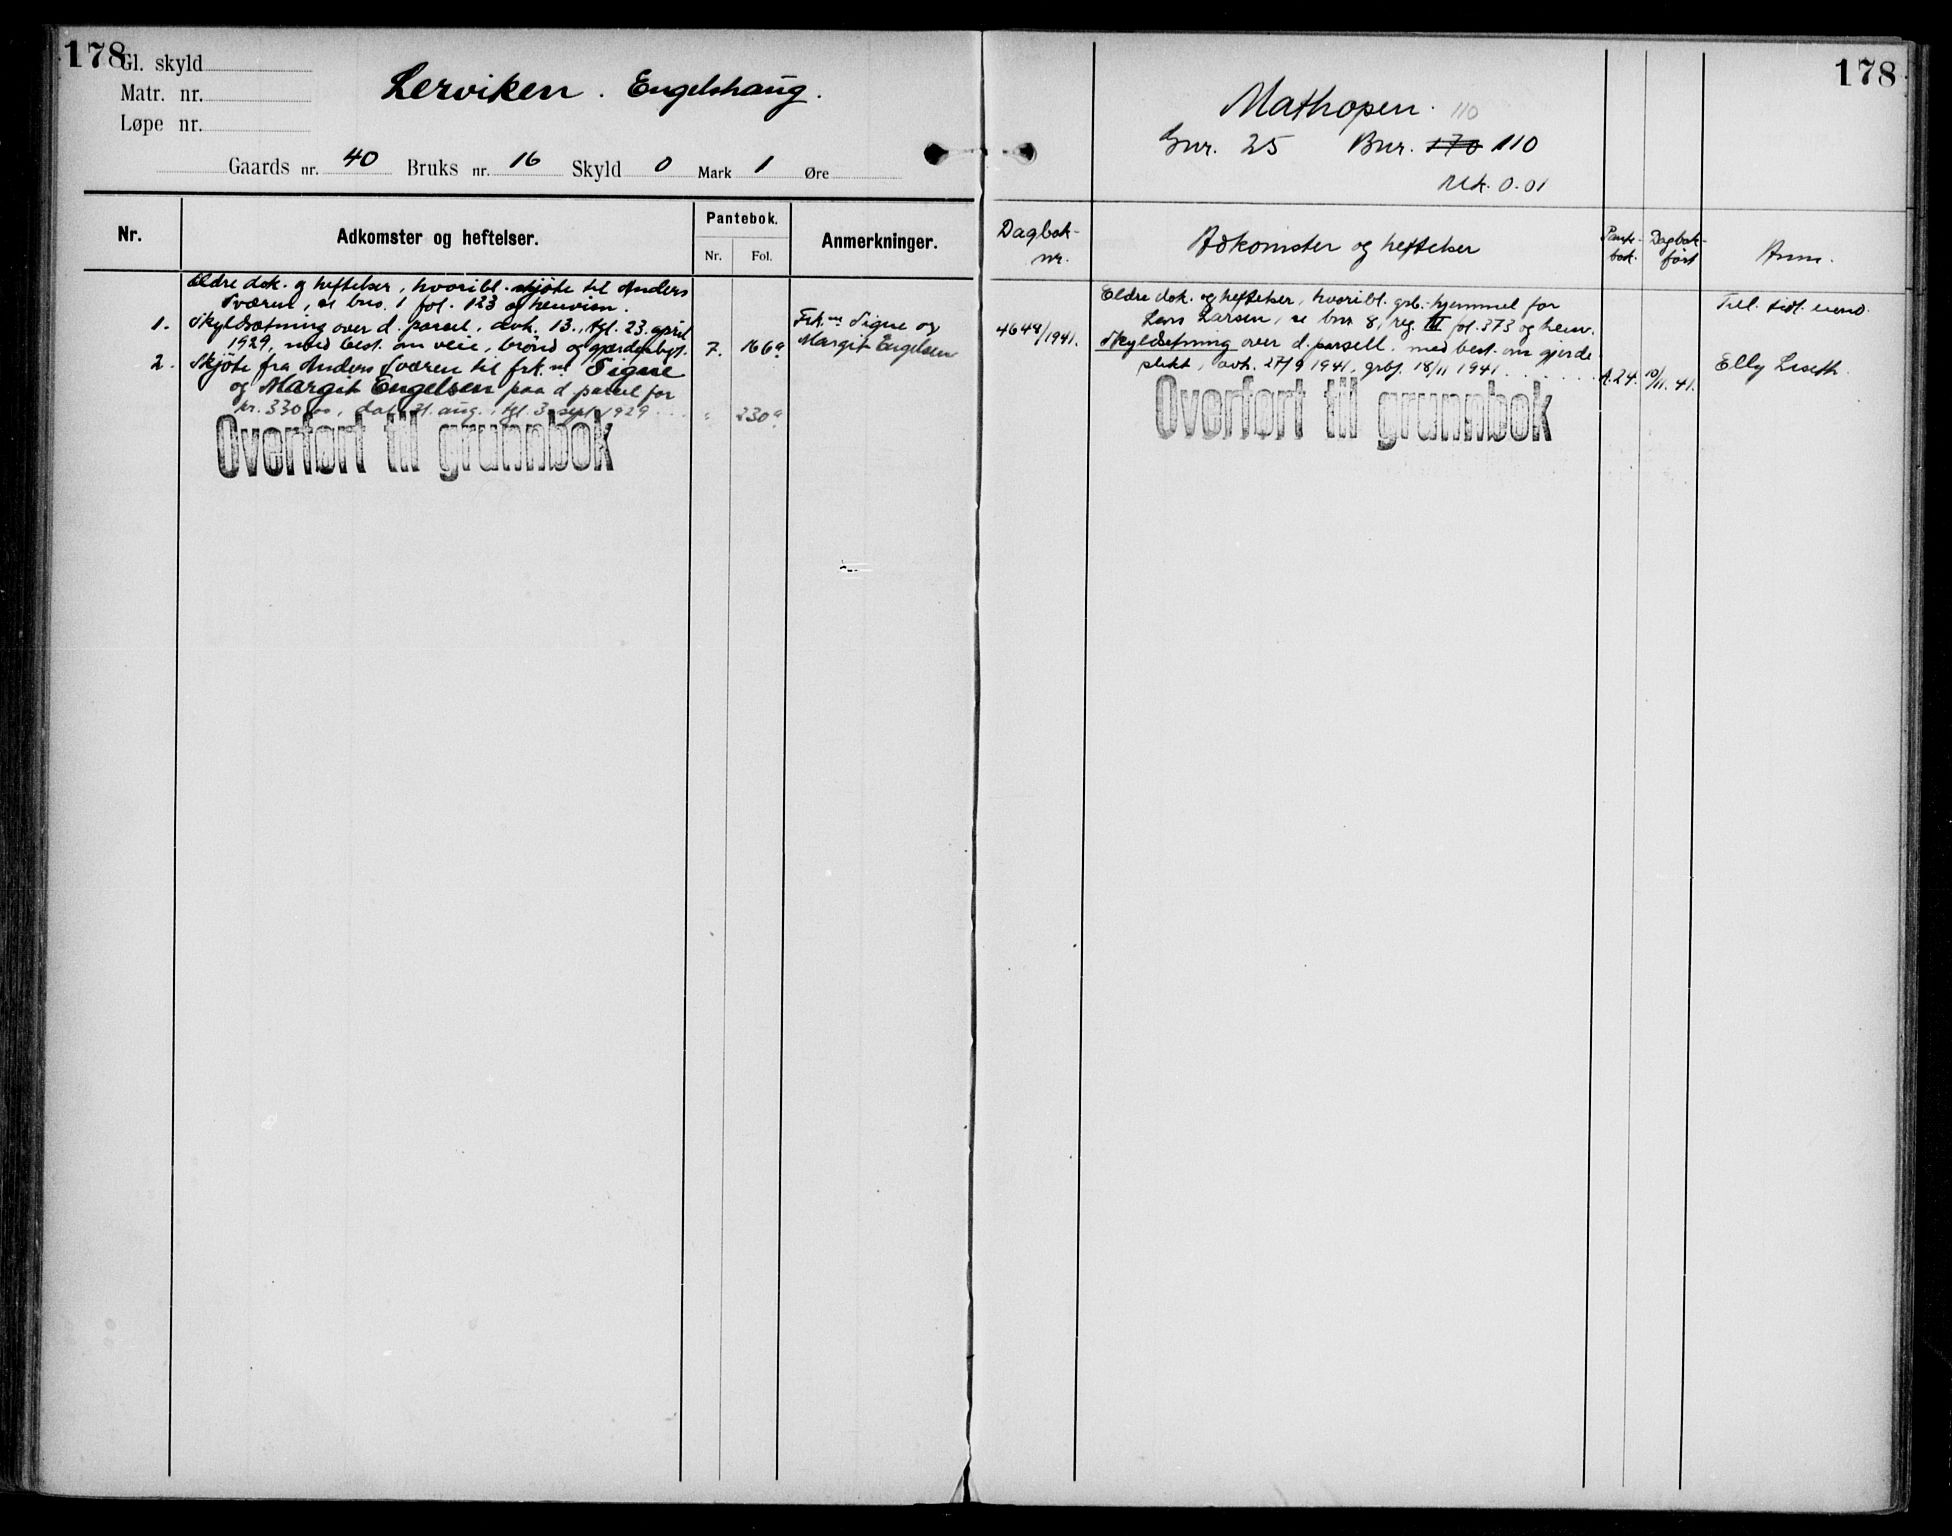 178
Gl. skyld
Matr. nr.
Løpe nr.
Lerviken. Engelshaug.
Gaards nr. 40 Bruks nr. 16 Skyld 0 Mark 1 Øre
Nr.
Adkomster og heftelser.
Pantebok.
Nr. Fol.
Anmerkninger.
Eldre dok. og heftelser, hvoribl. skjøte til Anders
Sværen, se bno. 1 fol. 123 og henvisn.
1. Skyldsætning over d. parsel, avh. 13., tgl. 23. april
1929, med best. om veie, brønd og gjærdenbyt. 7. 166a
2. Skjøte fra Anders Sværen til frk.ne Signe
og Margit Engelsen paa d parsel for
kr. 330,00, dat. 31. aug., tgl. 3. sept 1929 " 230a
Frk.ne Signe og
Margit Engelsen
Overført til grunnbok
178
Mathopen. 110
Gnr. 25 Bnr. 170 110
Mk. 0.01
Dagbok-
nr.
Adkomster og heftelser
Pante-
bok.
Dagbok-
ført
Anm.
Eldre dok. og heftelser, hvoribl. grb.-hjemmel for
Lars Larsen, se bnr 8, reg. III fol. 373 og henv.
4648/1941. Skyldsetning over d. parsell. med best. om gjerde
plikt, avh. 27/9 1941, grbf. 18/11 1941 A.24. 18/11. 41.
Till. tidl. eiend.
Elly Liseth.
Overført til grunnbok